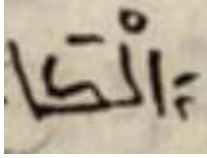 بِالْكَا